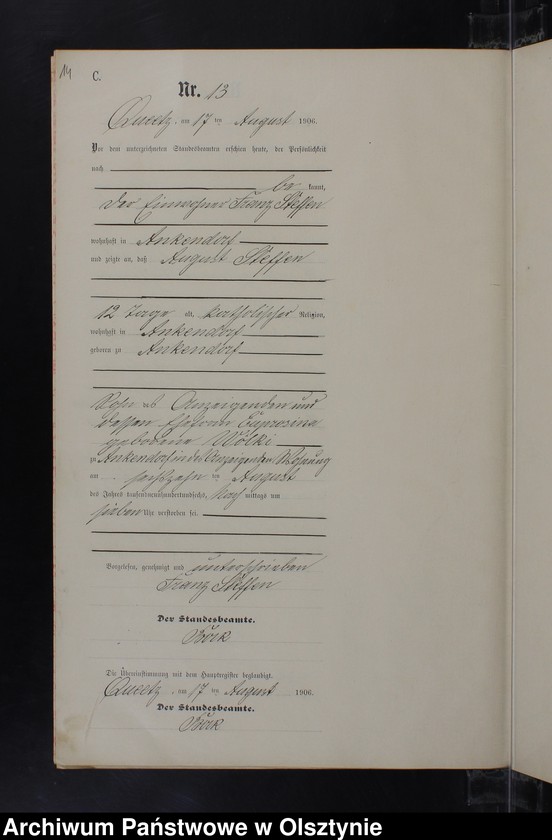 14
C.
Nr. 13
Queetz, am 17 ten August 1906.
Vor dem unterzeichneten Standesbeamten erschien heute, der Persönlichkeit
nach
be kannt,
der Einwohner Franz Steffen
wohnhaft in Ankendorf
und zeigte an, daß August Steffen
12 Tage alt, katholischer Religion,
wohnhaft in Ankendorf
geboren zu Ankendorf
Sohn des Anzeigenden und
dessen Ehefrau
geborene Wölki
zu Ankendorf in des Anzeigenden Wohnung
am sechszehn ten August
des Jahres tausendneunhundertundsechs, Nach mittags um
sieben Uhr verstorben sei.
Vorgelesen, genehmigt und unterschrieben
Franz Steffen
Der Standesbeamte.
Die Übereinstimmung mit dem Hauptregister beglaubigt.
Queetz, am 17 ten August 1906.
Der Standesbeamte.
Archiwum Państwowe w Olsztynie